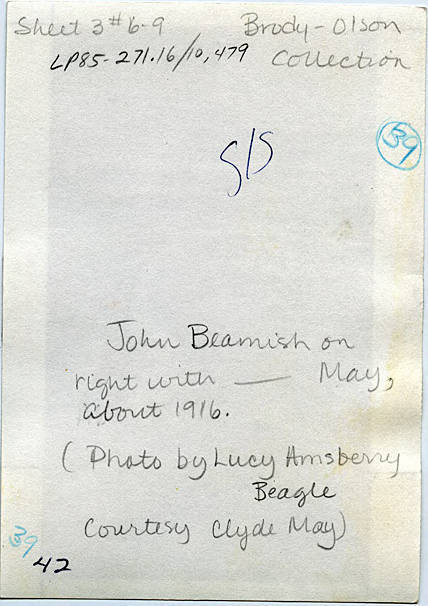 Sheet 3 # 6-9 Brody-Olson
LP85-271.16/10,479 Collection
39
John Beamish on
right with — May,
about 1916.
(Photo by Lucy Amsberry
Beagle
Courtesy Clyde May)
39
42